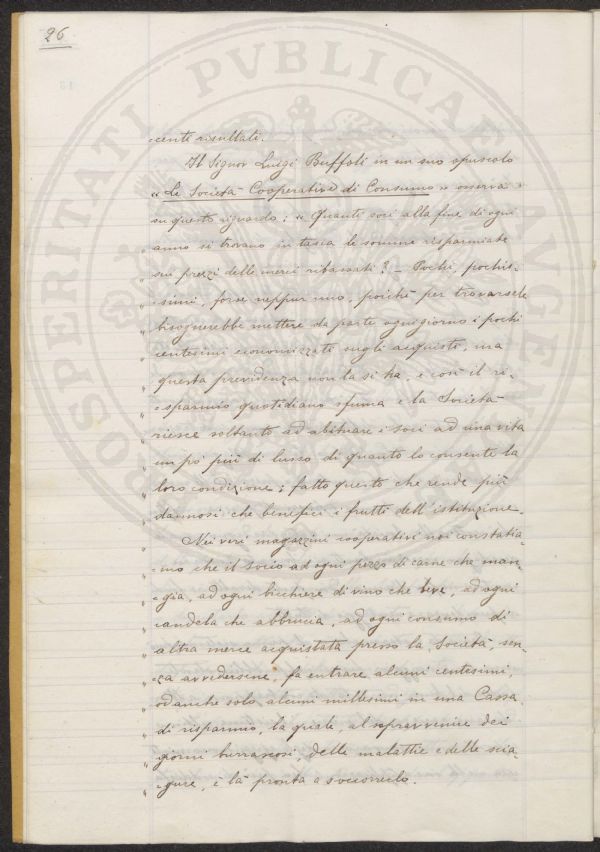 26
-centi risultati.
Il Signor Luigi Buffoli in un suo opuscolo
« Le Società Cooperative di Consumo » osserva
su questo riguardo: « Quanti soci alla fine di ogni
" anno si trovano in tasca le somme risparmiate
" sui prezzi delle merci ribassati? – Pochi, pochis-
" -simi, forse neppur uno, poichè per trovarsele
" bisognerebbe mettere da parte ogni giorno i pochi
" centesimi economizzati sugli acquisti, ma
" questa previdenza non la si ha, e così il ri-
" -sparmio quotidiano sfuma e la Società
" riesce soltanto ad abituare i soci ad una vita
" un po' più di lusso di quanto lo consente la
" loro condizione; fatto questo che rende più
" dannosi che benefici i frutti dell'istituzione.
" Nei veri magazzini cooperativi noi constatia-
" -mo che il socio ad ogni pezzo di carne che man-
" -gia, ad ogni bicchiere di vino che beve, ad ogni
" candela che abbrucia, ad ogni consumo di
" altra merce acquistata presso la Società, sen-
" -za avvedersene, fa entrare alcuni centesimi,
" od anche solo alcuni millesimi in una Cassa
" di risparmio, la quale, al sopravvenire dei
" giorni burrascosi, delle malattie e delle scia-
" -gure, è là pronta a soccorrerlo.
PROSPERITATI PVBLICAE AVGENDAE